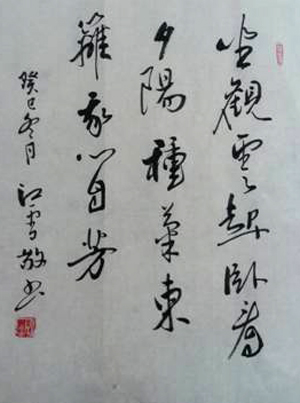 坐觀雲起卧看
夕陽種菊東
籬我心自芳
癸巳冬月 江雪敬书